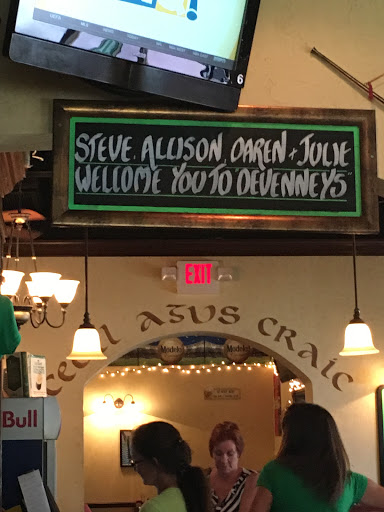 6
STEVE, ALLISON, DAREN + JULIE
WELLOME YOU TO "DEVENNEYS"
EXIT
ceoil agus craic
Modelo Modelo
Bull